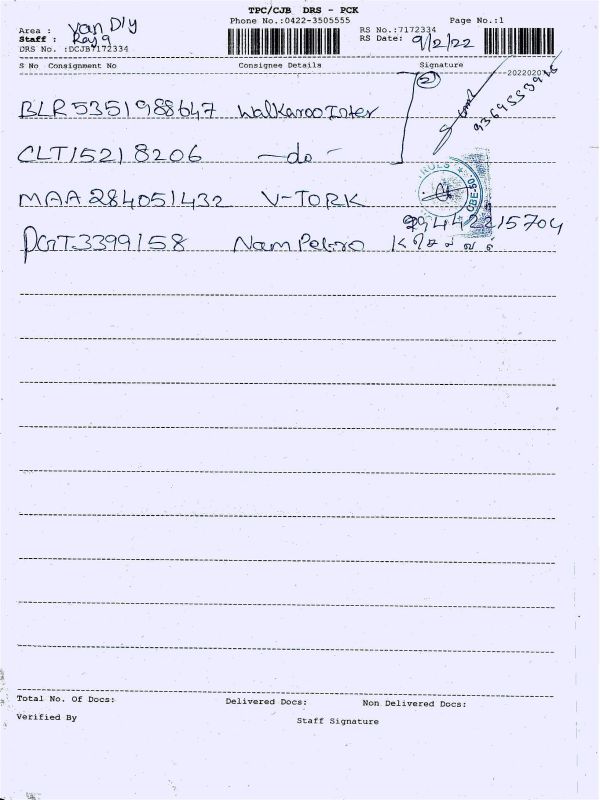 TPC/CJB DRS - PCK
Phone No.:0422-3505555 Page No.:1
Area : Van Dly
Staff : Raj 9
DRS No. :DCJB7172334
RS No.:7172334
RS Date: 9/2/22
S No Consignment No Consignee Details Signature
2022020
BLR5351988647 Walkaroo Inter 2
CLT15218206 -do-
MAA284051432 V-TORK
PGT3399158 Nam Petro 9442215704
Total No. Of Docs: Delivered Docs: Non Delivered Docs:
Verified By Staff Signature